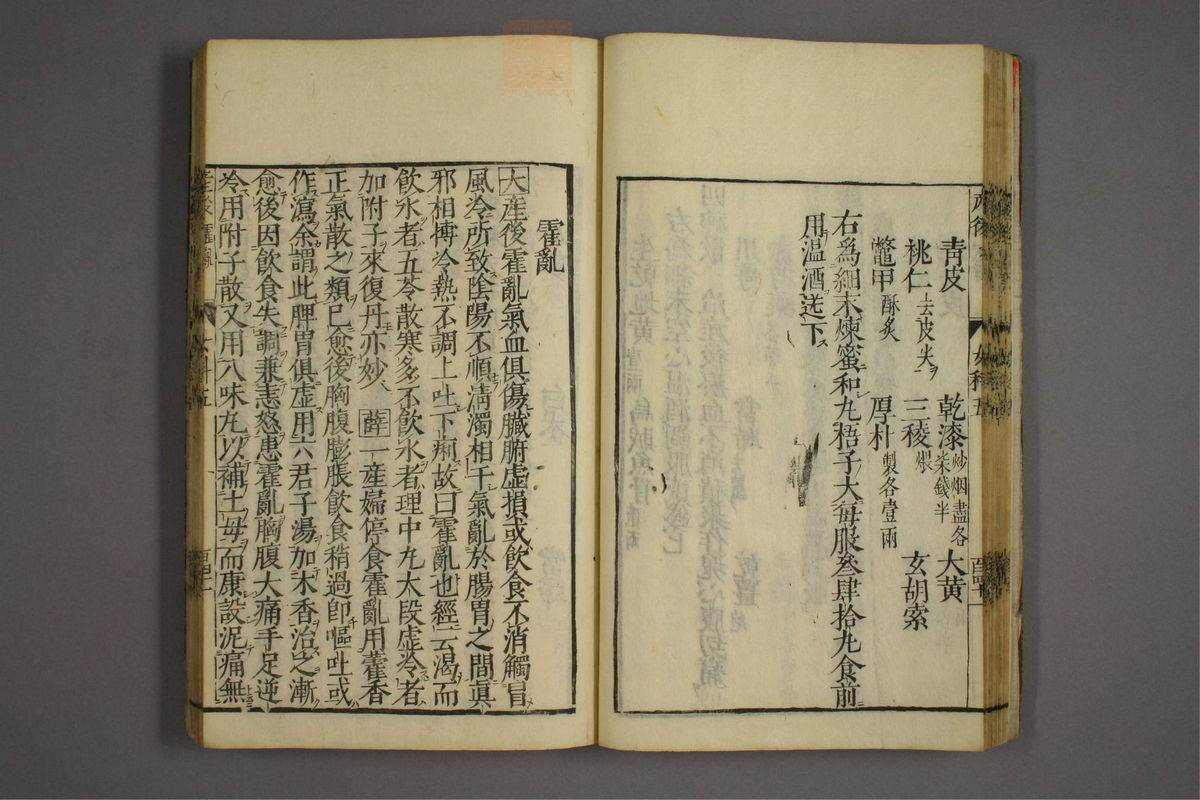 青皮 乾漆炒烟盡各柒錢半 大黄
桃仁去皮尖 三稜煨 玄胡索
鼈甲酥炙 厚朴製各壹兩
右爲細末煉蜜和丸梧子大每服叄肆拾丸食前
用温酒送下
霍亂
大產後霍亂氣血俱傷臟腑虛損或飲食不消觸冒
風冷所致陰陽不順清濁相干氣亂於腸胃之間眞
邪相搏冷熱不調上吐下痢故曰霍亂也經云渴而
飲水者五苓散寒多不飲水者理中丸大段虛冷者
加附子來復丹亦妙 薛一產婦停食霍亂用藿香
正氣散之類已愈後胸腹膨脹飲食稍過卽嘔吐或
作瀉余謂此脾胃俱虛用六君子湯加木香治之漸
愈後因飲食失調兼恚怒患霍亂胸腹大痛手足逆
冷用附子散又用八味丸以補土母而康設泥痛無
產後
女科五